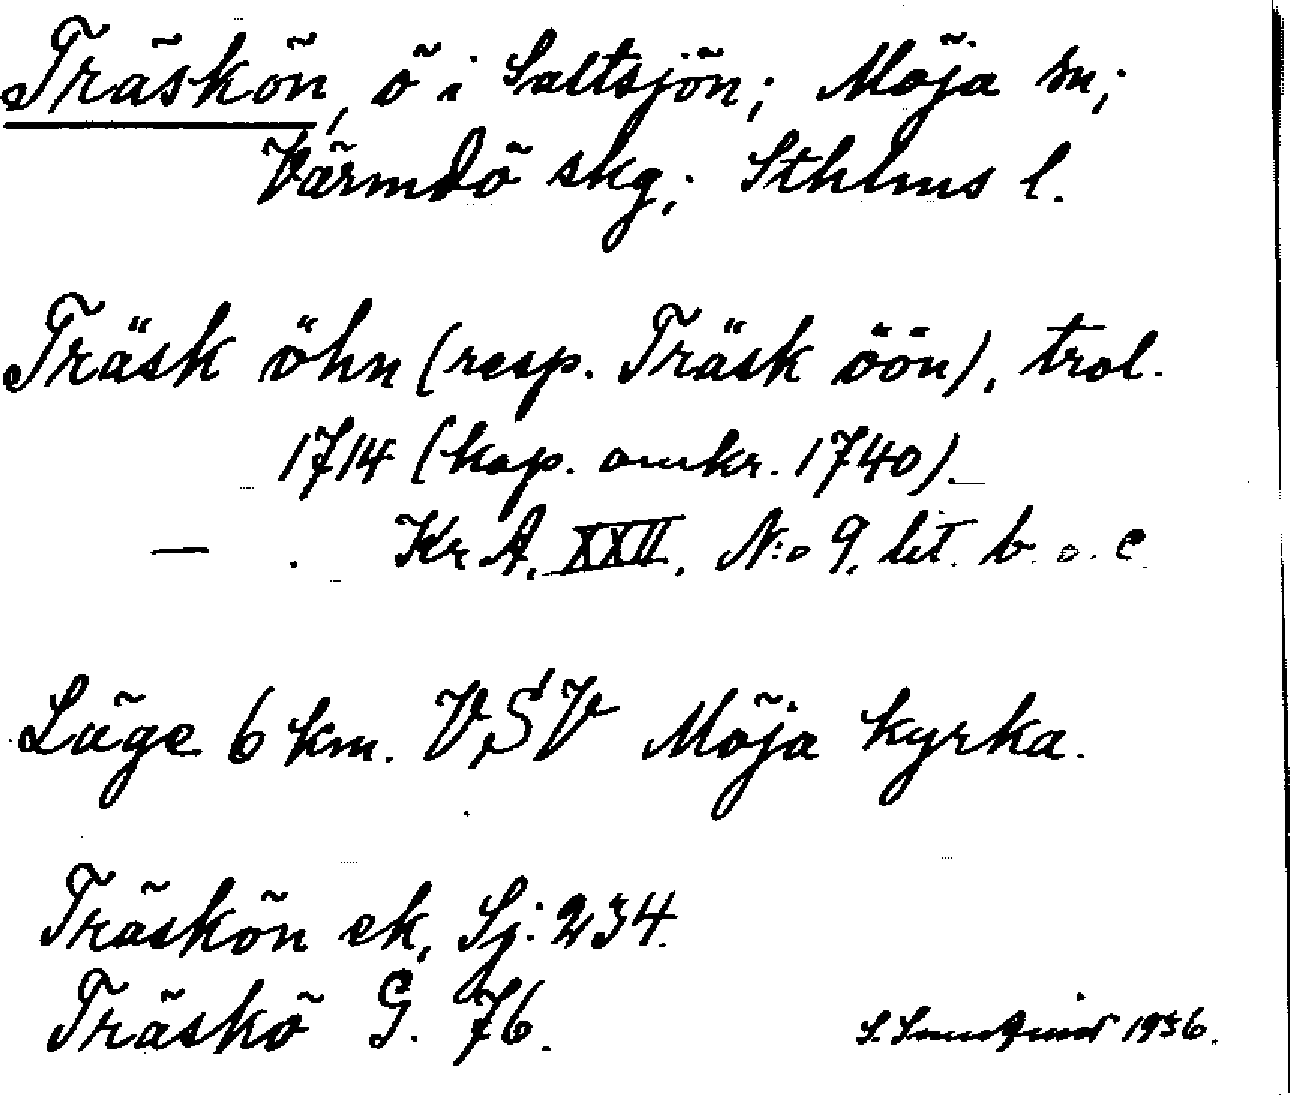 Träskön, ö i Saltsjön; Möja sn;
Värmdö skg; Sthlms l.
Träsk öhn (resp. Träsk öön), trol.
1714 (kop. omkr. 1740).
— . Kr A. XXII. N:o 9. lit. b. o. c
Läge 6 km. VSV Möja kyrka.
Träskön ek, Sj: 234.
Träskö G. 76.
S. 1936.